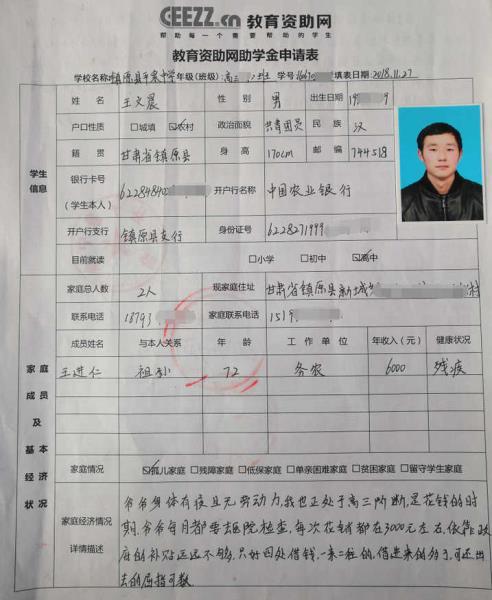 GEEZZ.cn 教育资助网
帮助每一个需要帮助的学生
教育资助网助学金申请表
学校名称:镇原县平泉中学 年级(班级):高三 班 学号 填表日期:2018.11.27
姓名 王文晨 性别 男 出生日期 19 9
户口性质 □城镇 ☑农村 政治面貌 共青团员 民族 汉
学生信息
籍贯 甘肃省镇原县 身高 170cm 邮编 744518
银行卡号(学生本人) 62284840 开户行名称 中国农业银行
开户行支行 镇原县支行 身份证号 6228271999
目前就读 □小学 □初中 ☑高中
家庭总人数 2人 现家庭住址 甘肃省镇原县新城 村
联系电话 18793 家庭联系电话 1519
家庭成员及基本经济状况
成员姓名 与本人关系 年龄 工作单位 年收入(元) 健康状况
王进仁 祖孙 72 务农 6000 残疾
家庭情况 ☑孤儿家庭 □残障家庭 □低保家庭 □单亲困难家庭 □贫困家庭 □留守学生家庭
家庭经济情况详情描述
爷爷身体有疾且无劳动力,我也正处于高三阶断,是花钱的时
期,爷爷每月都要去医院检查,每次花销都在3000元左右,依靠政
府的补贴远远不够,只好四处借钱,一来二往的,借进来的多了,可还出
去的屈指可数